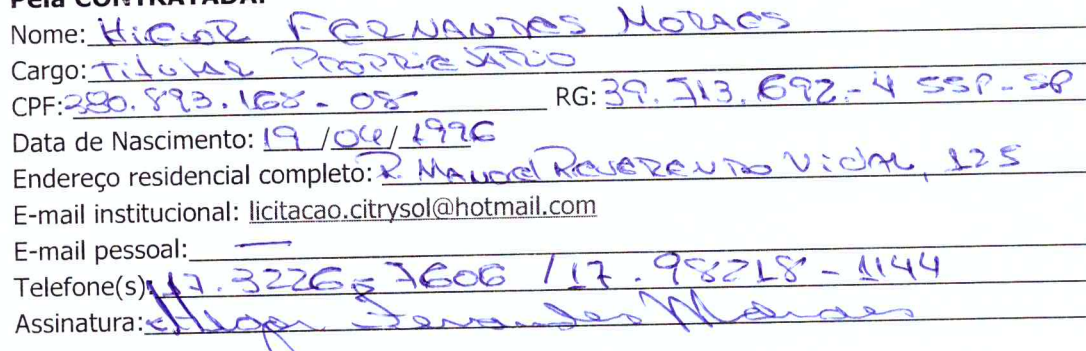 Pela CONTRATADA:
Nome: HIGOR FERNANDES MORAES
Cargo: TITULAR PROPRIETÁRIO
CPF: 380.893.168-08 RG: 39.713.692-4 SSP-SP
Data de Nascimento: 19/04/1996
Endereço residencial completo: R. MANOEL REVERENDO VIDAL, 125
E-mail institucional: licitacao.citrysol@hotmail.com
E-mail pessoal: —
Telefone(s): 17.3226-7606 / 17.98218-1144
Assinatura: Higor Fernandes Moraes